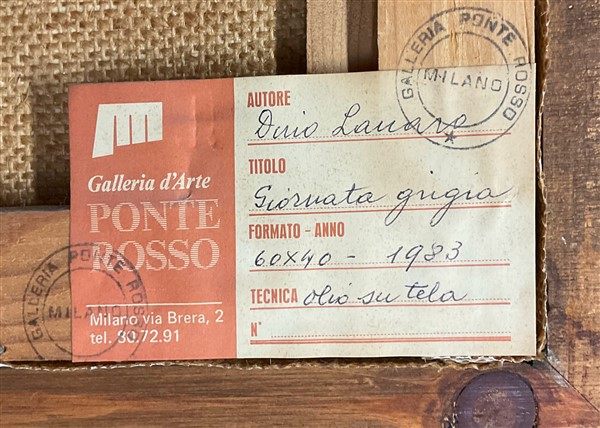 GALLERIA PONTE ROSSO
MILANO
Galleria d'Arte
PONTE
ROSSO
Milano via Brera, 2
tel. 80.72.91
AUTORE
Dino Lanaro
TITOLO
Giornata grigia
FORMATO - ANNO
60x40 - 1983
TECNICA olio su tela
N°
GALLERIA PONTE ROSSO
MILANO